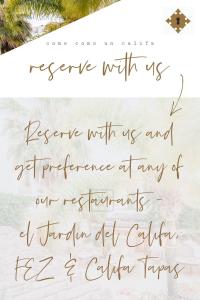 come como un califa
reserve with us
Reserve with us and
get preference at any of
our restaurants -
el Jardin del Califa,
FEZ & Califa Tapas